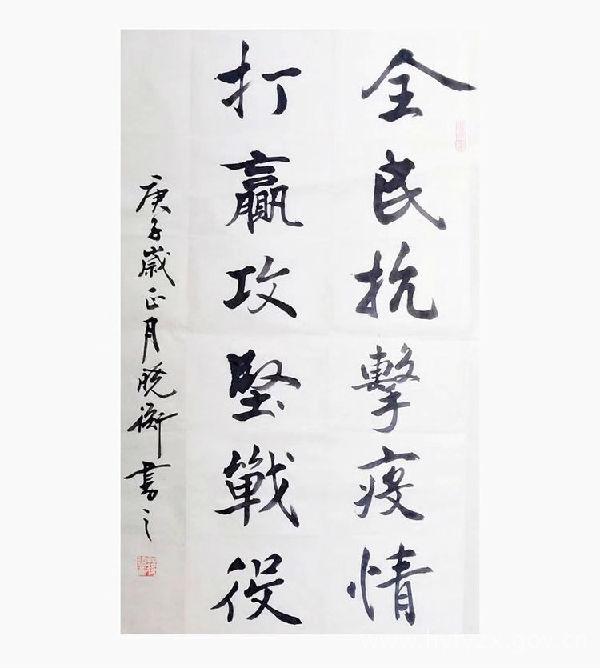 全民抗擊疫情
打贏攻堅戰役
庚子歲正月曉衡書之